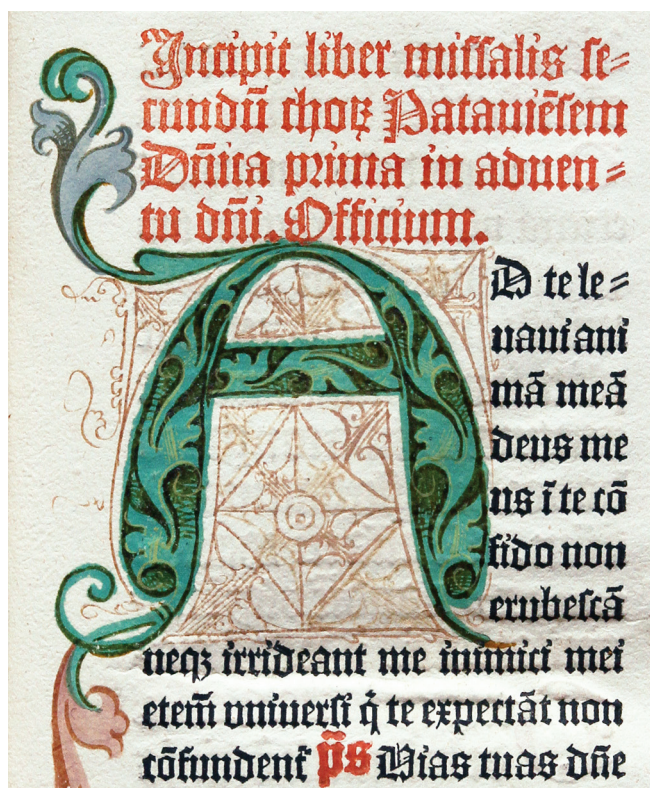 Incipit liber missalis se=
cundũ choꝝ Patauiẽsem
Dñica prima in aduen=
tu dñi. Officium.
AD te le=
uaui ani
mã meã
deus me
us ĩ te cõ
fido non
erubescã
neqꝫ irrideant me inimici mei
etem̃ vniuersi q̇ te expectãt non
cõfundent᷑ p̃s Vias tuas dñe